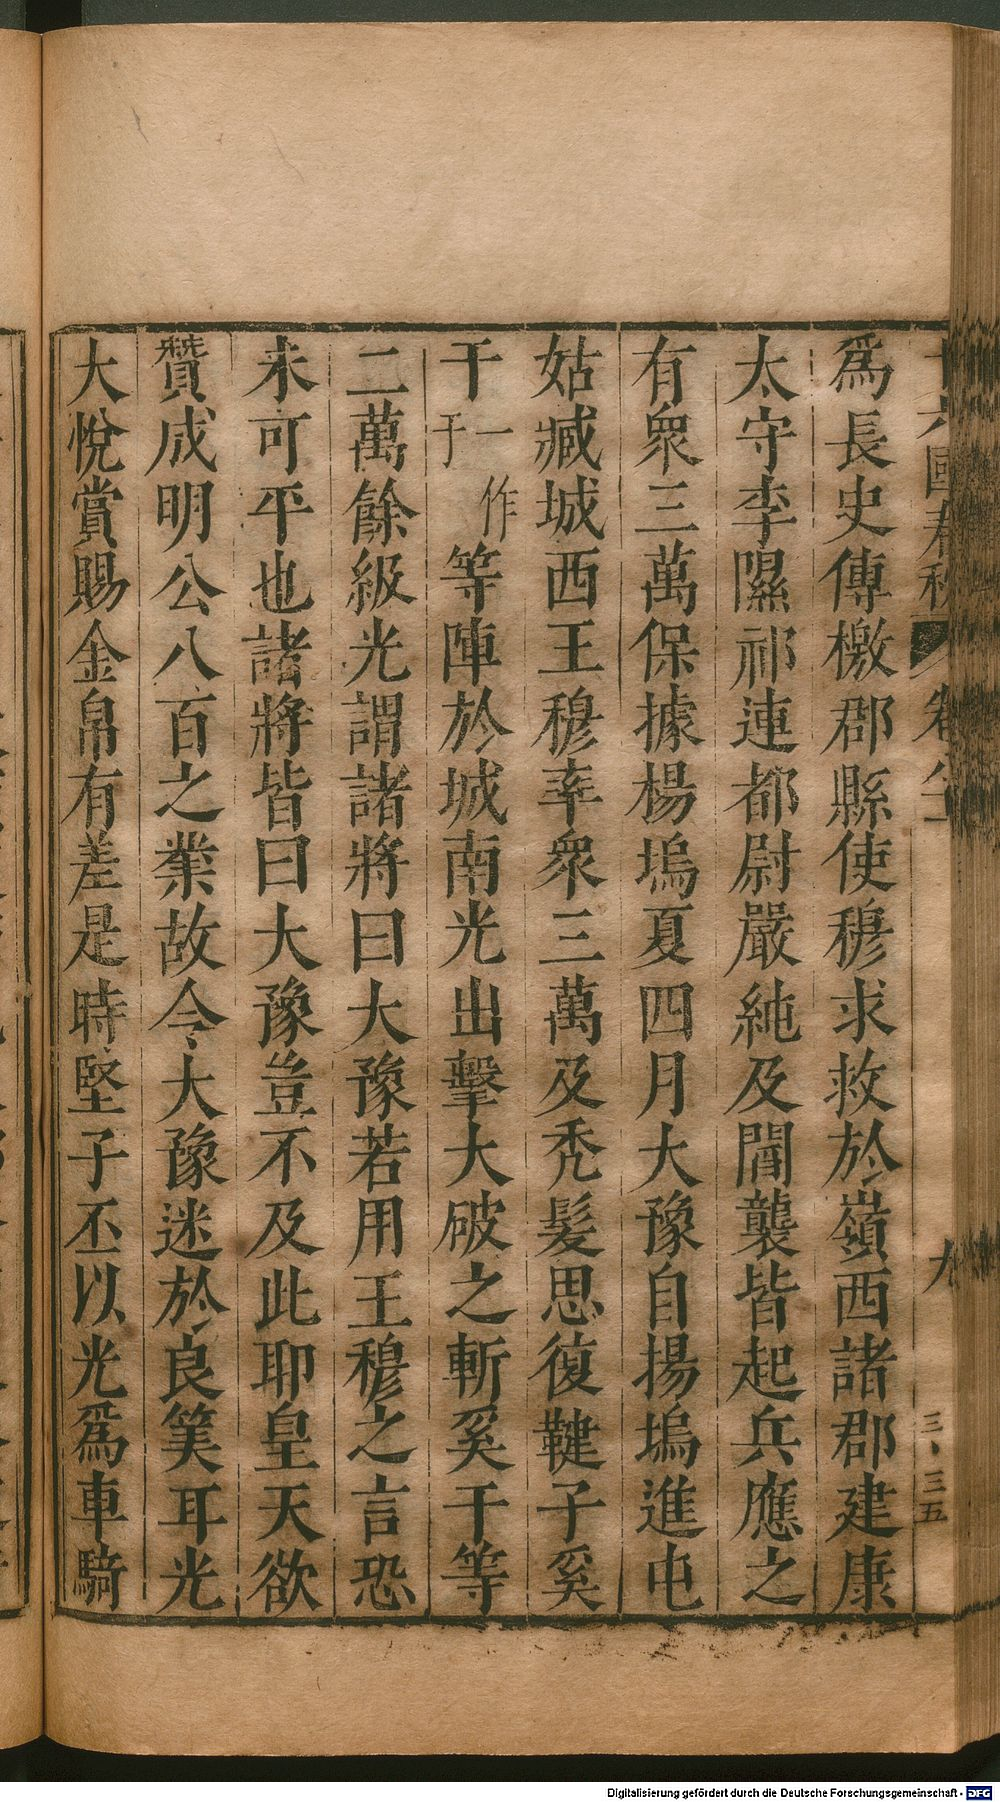 十六國春秋 卷八十 九 三、三五
爲長史傳檄郡縣使穆求救於嶺西諸郡建康
太守李隰祁連都尉嚴純及閻襲皆起兵應之
有衆三萬保據楊塢夏四月大豫自揚塢進屯
姑臧城西王穆率衆三萬及禿髮思復鞬子奚
干一作于等陣於城南光出擊大破之斬奚干等
二萬餘級光謂諸將曰大豫若用王穆之言恐
未可平也諸將皆曰大豫豈不及此耶皇天欲
贊成明公八百之業故令大豫迷於良筭耳光
大悅賞賜金帛有差是時堅子丕以光爲車騎
Digitalisierung gefördert durch die Deutsche Forschungsgemeinschaft - DFG